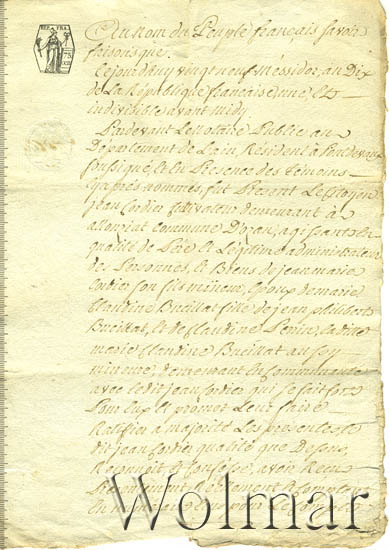 REP. FRA.
Au Nom du Peuple français Savoir
faisons que
Cejourdhuy vingt neuf Messidor, an Dix
de La République francaise, une Et
indivisible avant midy
Pardevant Le Notaire Public au
Département de Lain, Résident à Pontdevaux
soussigné, Et En Presence des temoins
cy après nommés, fut Présent Le Citoyen
jean Cordier Cultivateur demeurant à
Commune Dozan, agissant En
qualité de Père Et Légitime administrateur
des Personnes, Et Biens de jean marie
Cordier son fils mineur, Epoux de marie
Claudine Buvillat fille de jean philibert
Buvillat, Et de Claudine Penin, Ladite
marie Claudine Buvillat aussy
mineure, demeurant En Communauté
avec Ledit jean Cordier qui Se fait fort
Pour Eux Et promet Leur faire
Ratifier à majorité Les présentes, Le
dit jean Cordier qualité que Dessus,
Reconnoit Et Confesse, avoir Reçu
Wolmar